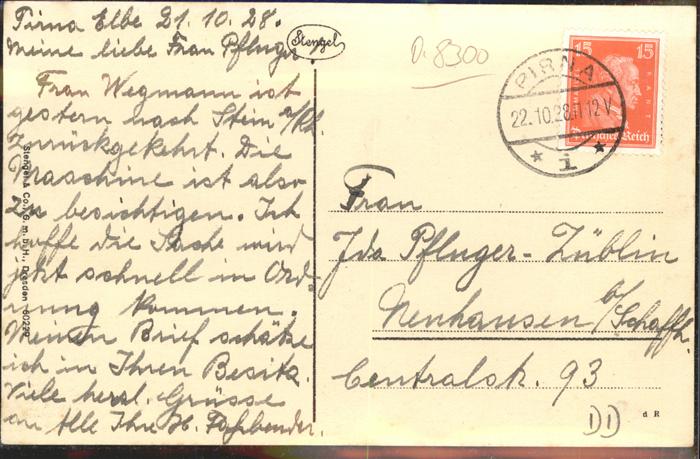 Pirna Elbe 21.10.28.
Meine liebe Frau Pfluger.
Frau Wegmann ist
gestern nach Stein a/Rh.
zurückgekehrt. Die
Maschine ist also
zu besichtigen. Ich
hoffe die Sache wird
jetzt schnell in Ord-
nung kommen.
Meinen Brief schätze
ich in Ihren Besitz.
Viele herzl. Grüsse
an Alle Ihre H.
Stengel
Stengel & Co., G.m.b.H., Dresden 60229
D. 8300
PIRNA
22.10.28.11-12 V.
* i *
15 15
KANT
Deutsches Reich
Frau
Ida Pfluger-Züblin
Neuhausen b/Schaffh.
Centralstr. 93
DD
d R